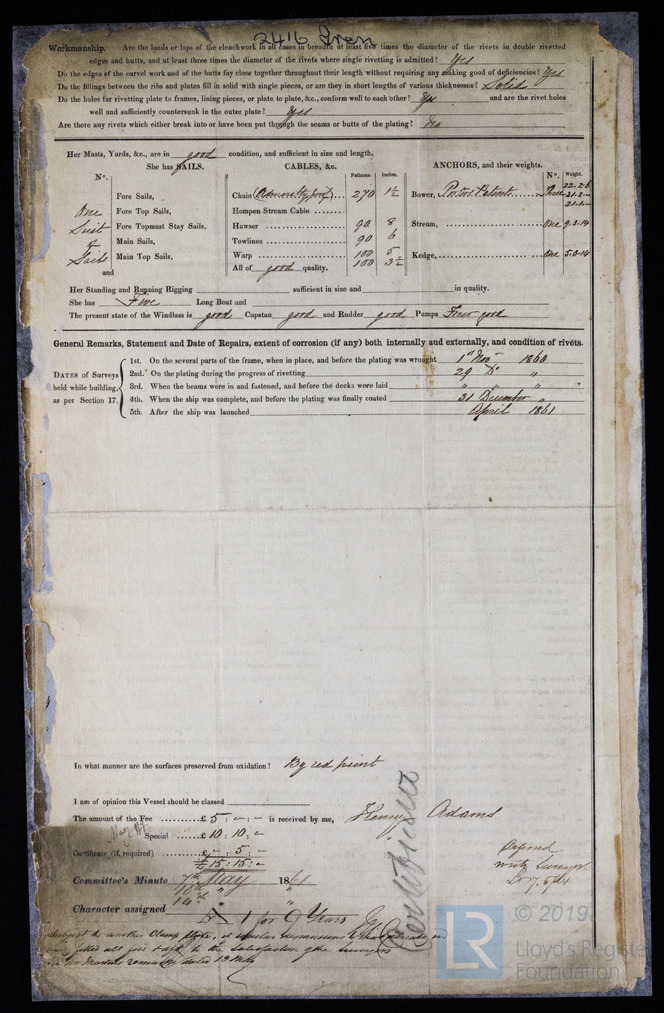 2416 Iron
Workmanship. Are the lands or laps of the clenchwork in all cases in breadth at least five times the diameter of the rivets in double rivetted
edges and butts, and at least three times the diameter of the rivets where single rivetting is admitted? Yes
Do the edges of the carvel work and of the butts fay close together throughout their length without requiring any making good of deficiencies? Yes
Do the fillings between the ribs and plates fill in solid with single pieces, or are they in short lengths of various thicknesses? Solid
Do the holes for rivetting plate to frames, lining pieces, or plate to plate, &c., conform well to each other? Yes and are the rivet holes
well and sufficiently countersunk in the outer plate? Yes
Are there any rivets which either break into or have been put through the seams or butts of the plating? No
Her Masts, Yards, &c., are in good condition, and sufficient in size and length.
She has SAILS. CABLES, &c. ANCHORS, and their weights.
N°. Fathoms. Inches. N°. Weight.
Fore Sails, Chain 270 1½ Bower, Porters Patent Three 22.2.6
21.2.
21.1.
One Fore Top Sails, Hempen Stream Cable
Suit Fore Topmast Stay Sails, Hawser 90 8 Stream, One 9.3.14
of Main Sails, Towlines 90 6
Sails Main Top Sails, Warp 100 5 Kedge, One 5.0.14
100 3½
and All of good quality.
Her Standing and Running Rigging sufficient in size and in quality.
She has Five Long Boat and
The present state of the Windlass is good Capstan good and Rudder good Pumps Four good
General Remarks, Statement and Date of Repairs, extent of corrosion (if any) both internally and externally, and condition of rivets.
DATES of Surveys held while building, as per Section 17.
1st. On the several parts of the frame, when in place, and before the plating was wrought 1st Nov 1860
2nd. On the plating during the progress of rivetting 29 Do "
3rd. When the beams were in and fastened, and before the decks were laid " " "
4th. When the ship was complete, and before the plating was finally coated 31 December "
5th. After the ship was launched April 1861
In what manner are the surfaces preserved from oxidation? By red paint
I am of opinion this Vessel should be classed
The amount of the Fee £ 5 : - : - is received by me, Henry Adams
Special £ 10 : 10 : -
Certificate (if required) £ - : 5 : -
£ 15 : 15 : -
Committee's Minute 7th May 1861
10th "
14th "
Character assigned A 1 for 9 Years
Subject to another Clamp
to the satisfaction of the Surveyors
dated 13 May
Certificate
Deferred
© 2019
LR
Lloyd's Register
Foundation